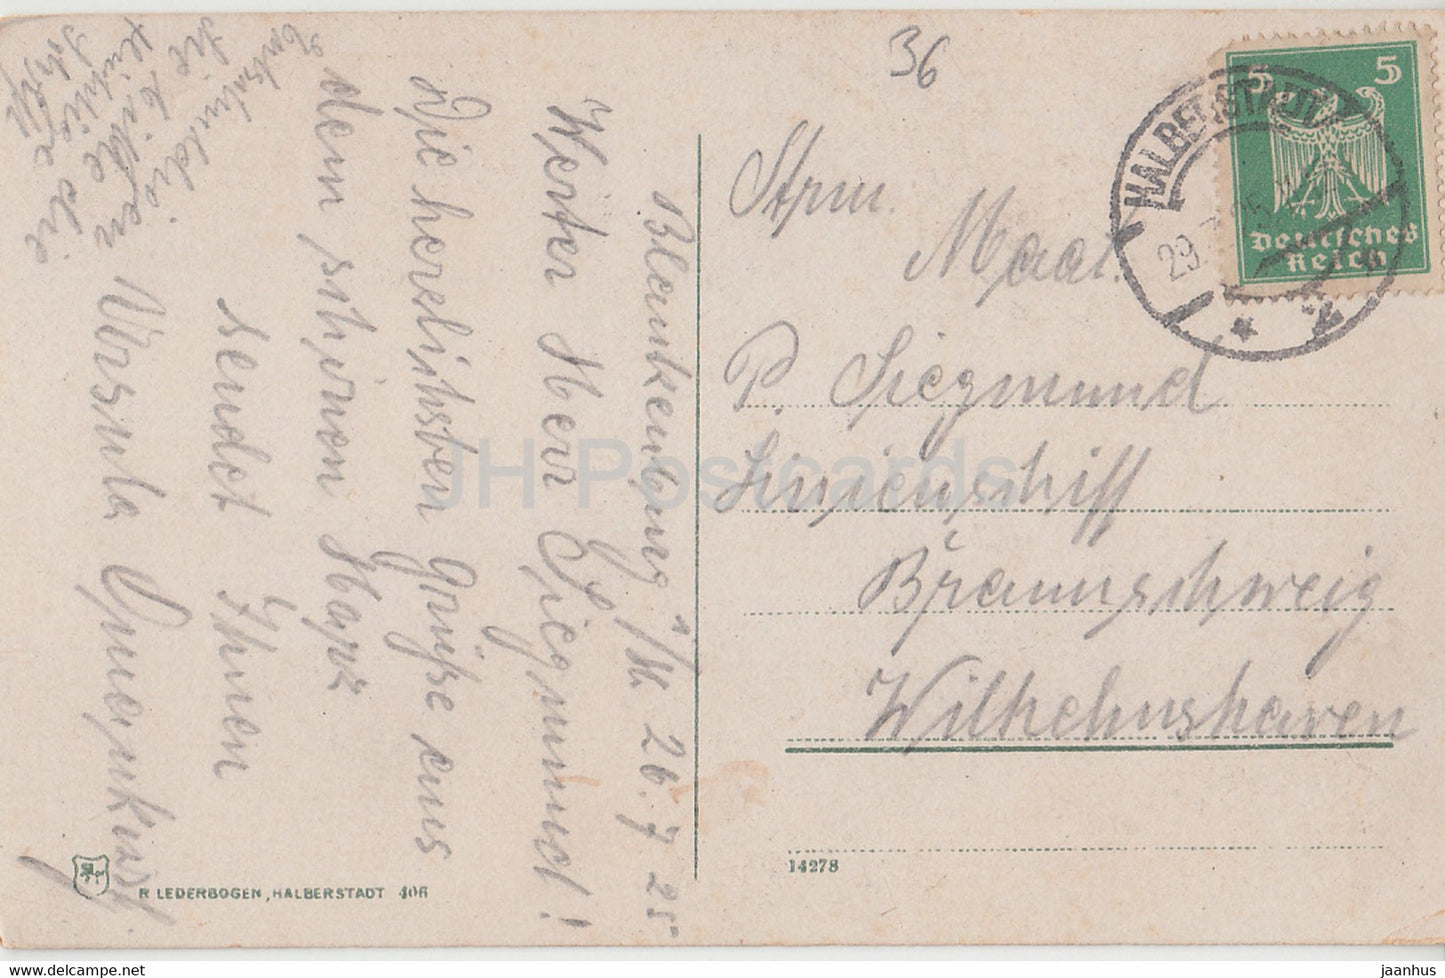 Blankenburg a/H 26.7.25
Werter Herr Siegmund!
Die herzlichsten Grüße aus
dem schönen Harz
sendet Ihnen
Ursula
Entschuldigen
Sie bitte die
36
Strm. Maat.
P. Siegmund
Linienschiff
Braunschweig
Wilhelmshaven
HALBERSTADT
29.7.25
1
5 5
Deutsches
Reich
R LEDERBOGEN, HALBERSTADT 406
14278
JH Postcards
www.delcampe.net
jaanhus